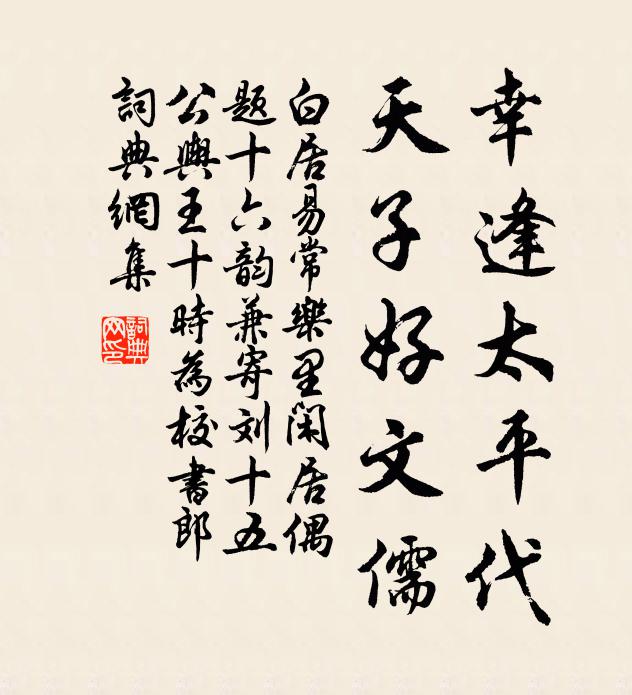 幸逢太平代
天子好文儒
白居易常樂里闲居偶
题十六韵兼寄刘十五
公輿王十時為校書郎
詞典網集
詞典
网印